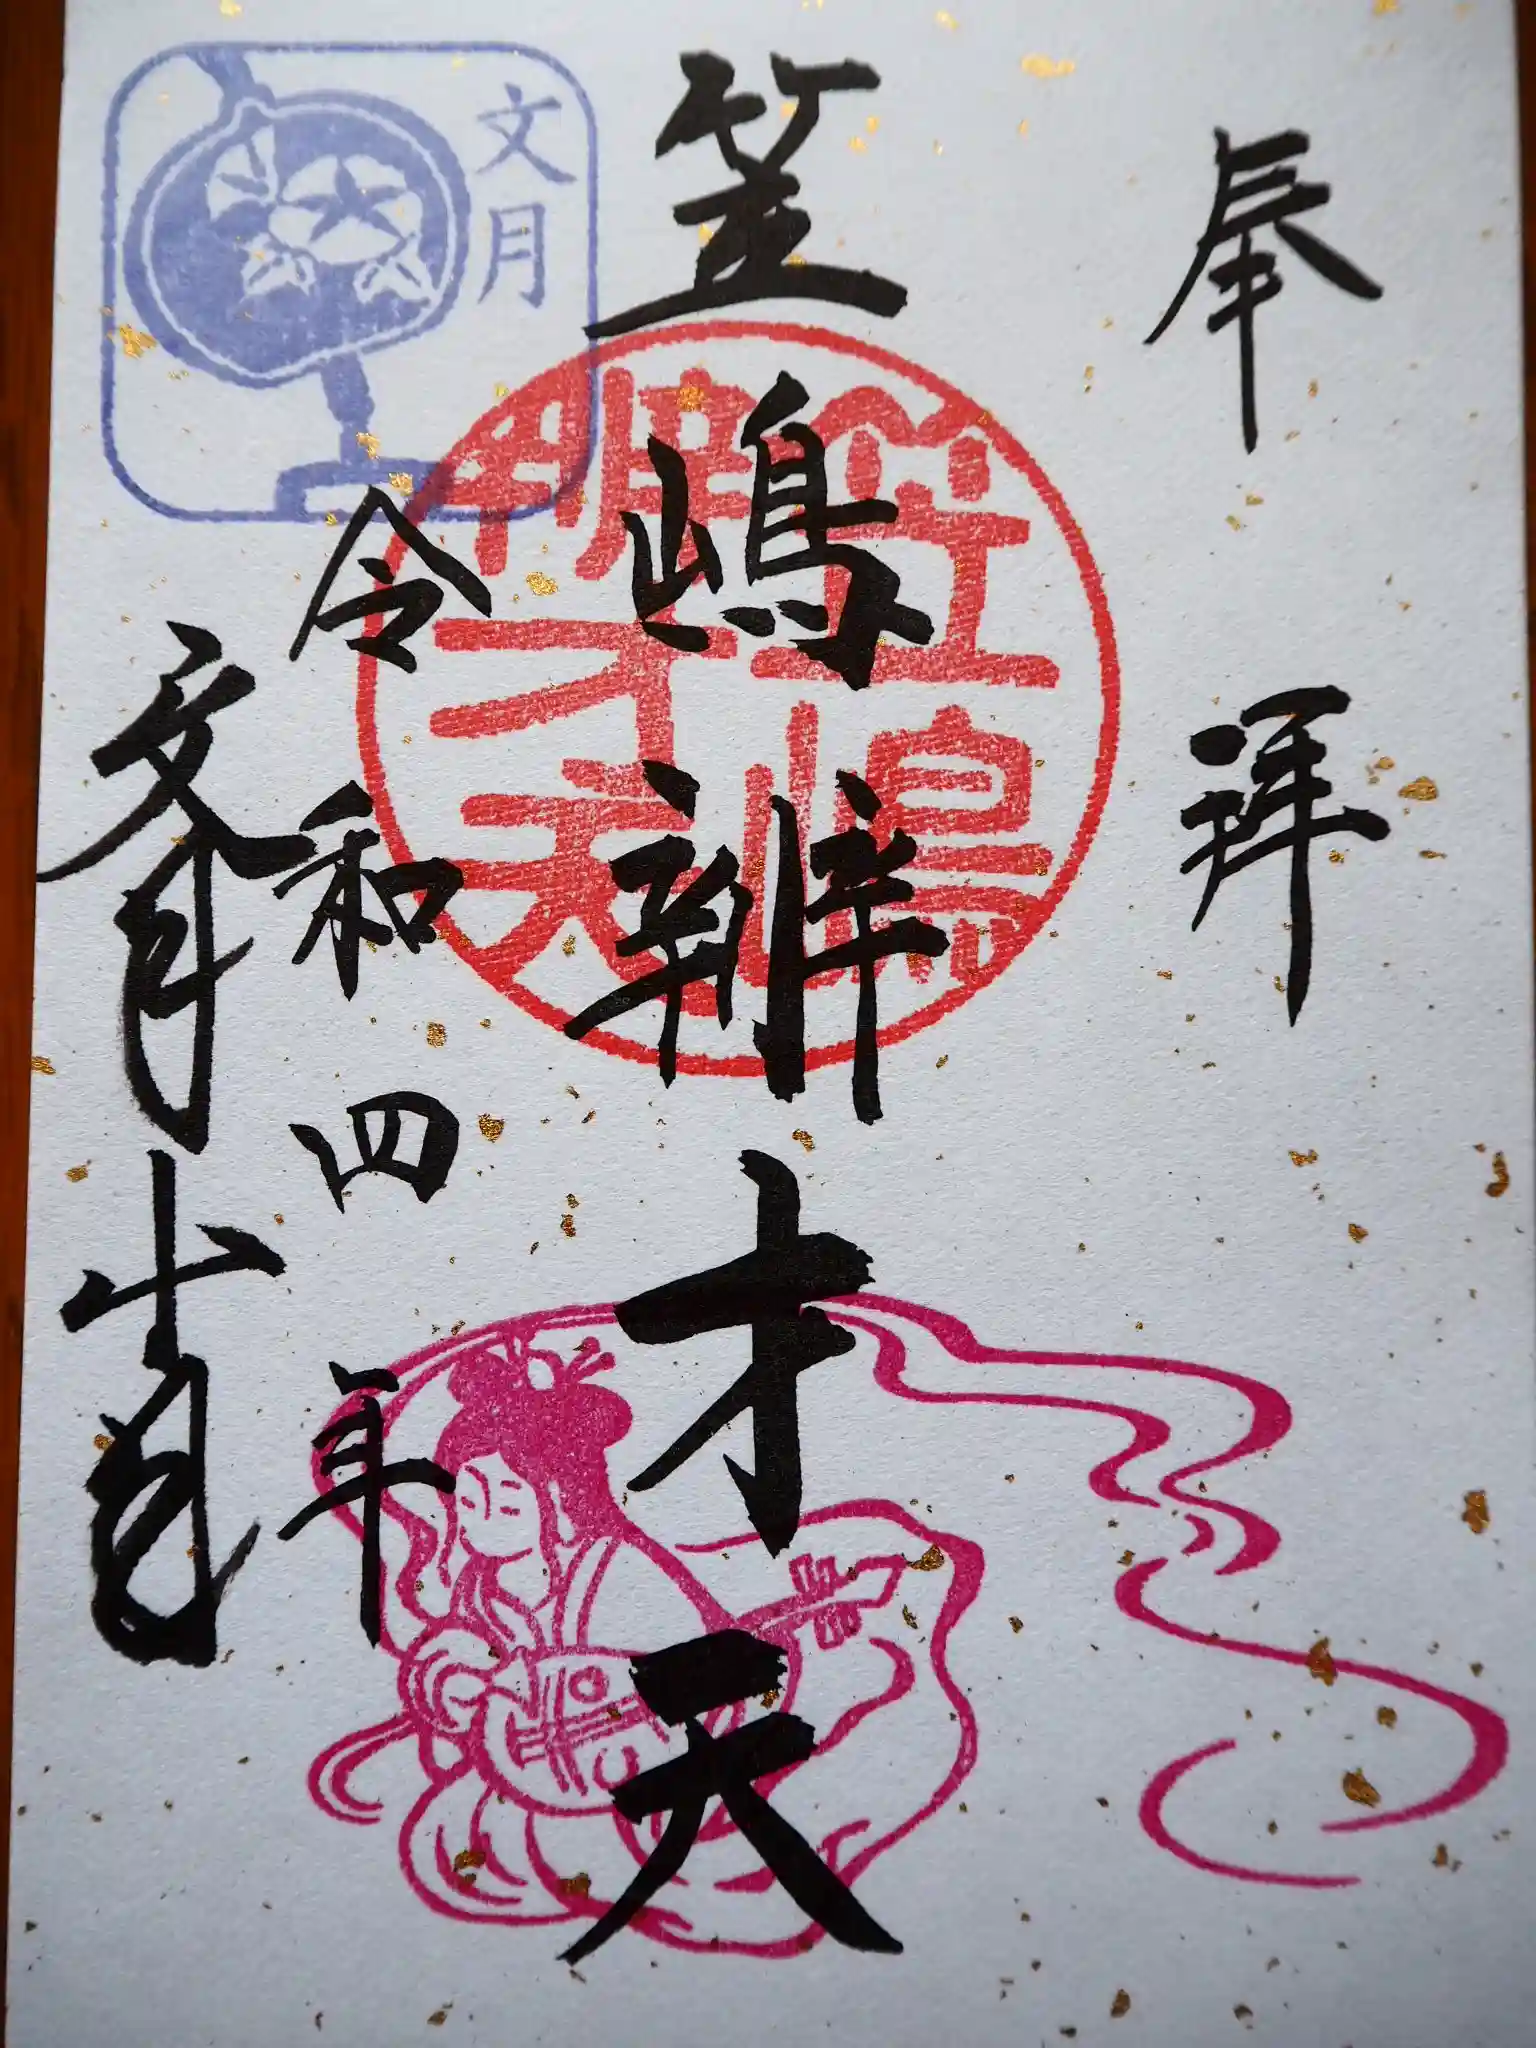 奉拝
笠嶋辨才天
笠嶋
辨才天
令和四年
文月
文月